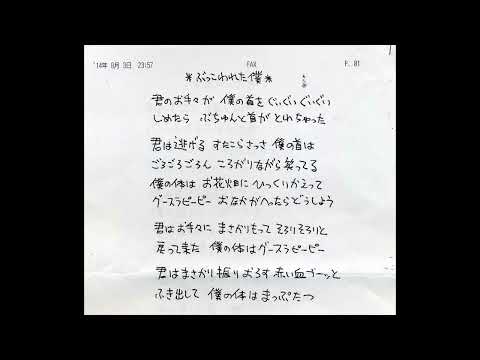 '14年 8月 3日 23:57 FAX P. 01
*ぶっこわれた僕*
君のお手々が 僕の首を ぐいぐいぐいぐい
しめたら ぶちゅんと首が とれちゃった
君は逃げる すたこらさっさ 僕の首は
ごろごろごろん ころがりながら笑ってる
僕の体は お花畑に ひっくりかえって
グースラピーピー おなかがへったらどうしよう
君はお手々に まさかりもって そろりそろりと
戻って来た 僕の体はグースラピーピー
君はまさかり振りおろす 赤い血ゴーッと
ふき出して 僕の体は まっぷたつ